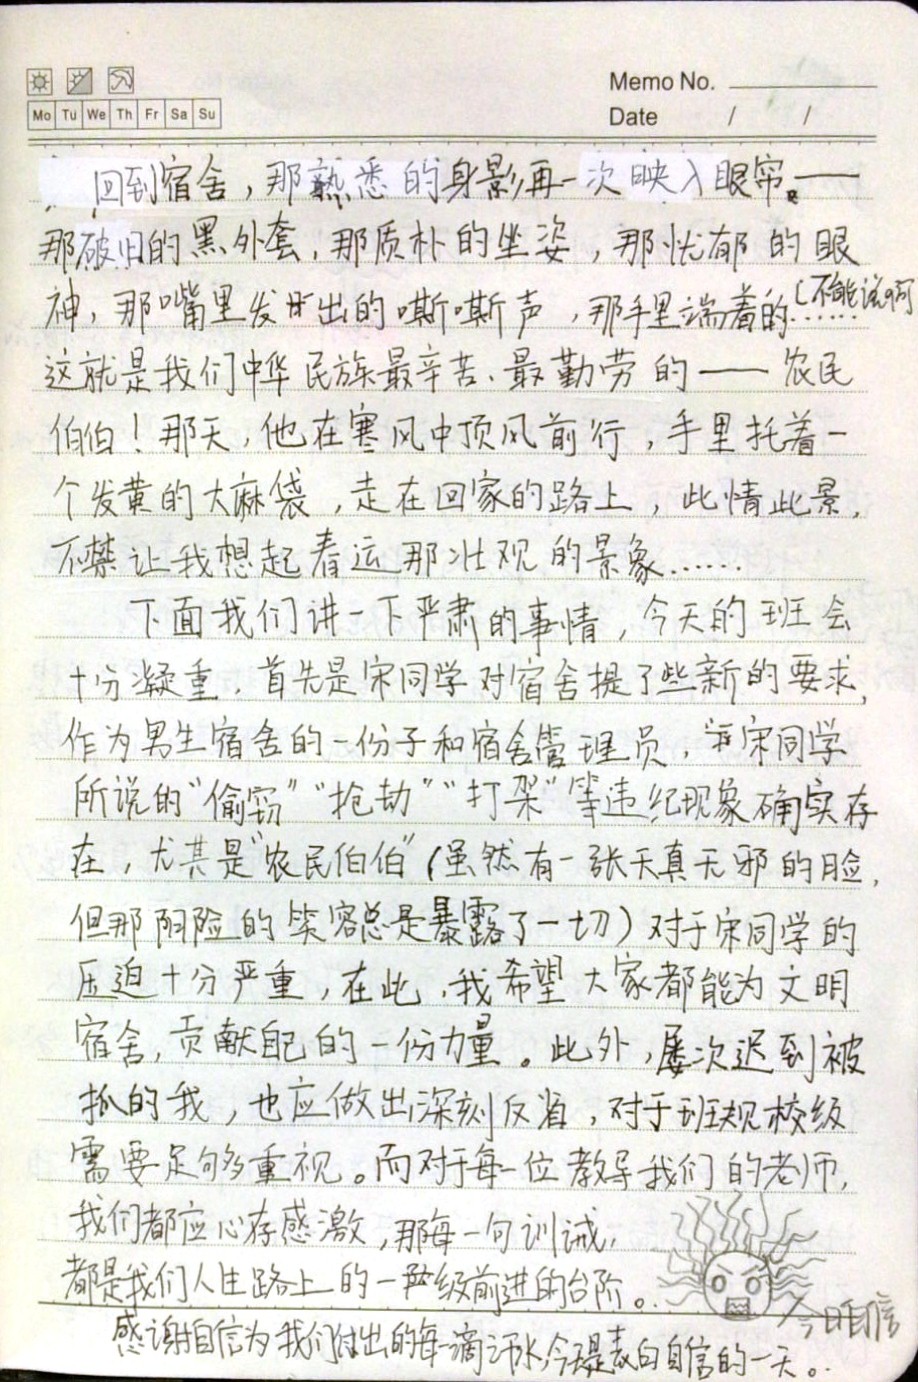 Memo No.
Mo Tu We Th Fr Sa Su
Date / /
回到宿舍，那熟悉的身影再一次映入眼帘。——
那破旧的黑外套，那质朴的坐姿，那忧郁的眼
神，那嘴里发出的嘶嘶声，那手里端着的……（不能说啊
这就是我们中华民族最辛苦、最勤劳的——农民
伯伯！那天，他在寒风中顶风前行，手里托着一
个发黄的大麻袋，走在回家的路上，此情此景，
不禁让我想起春运那壮观的景象……
下面我们讲一下严肃的事情，今天的班会
十分凝重，首先是宋同学对宿舍提了些新的要求，
作为男生宿舍的一份子和宿舍管理员，宋同学
所说的“偷窃”“抢劫”“打架”等违纪现象确实存
在，尤其是“农民伯伯”（虽然有一张天真无邪的脸，
但那阴险的笑容总是暴露了一切）对于宋同学的
压迫十分严重，在此，我希望大家都能为文明
宿舍，贡献自己的一份力量。此外，屡次迟到被
抓的我，也应做出深刻反省，对于班规校级
需要足够多重视。而对于每一位教导我们的老师，
我们都应心存感激，那每一句训诫，
都是我们人生路上的一级级前进的台阶。
感谢自信为我们付出的每滴汗水，今天是表白自信的一天。